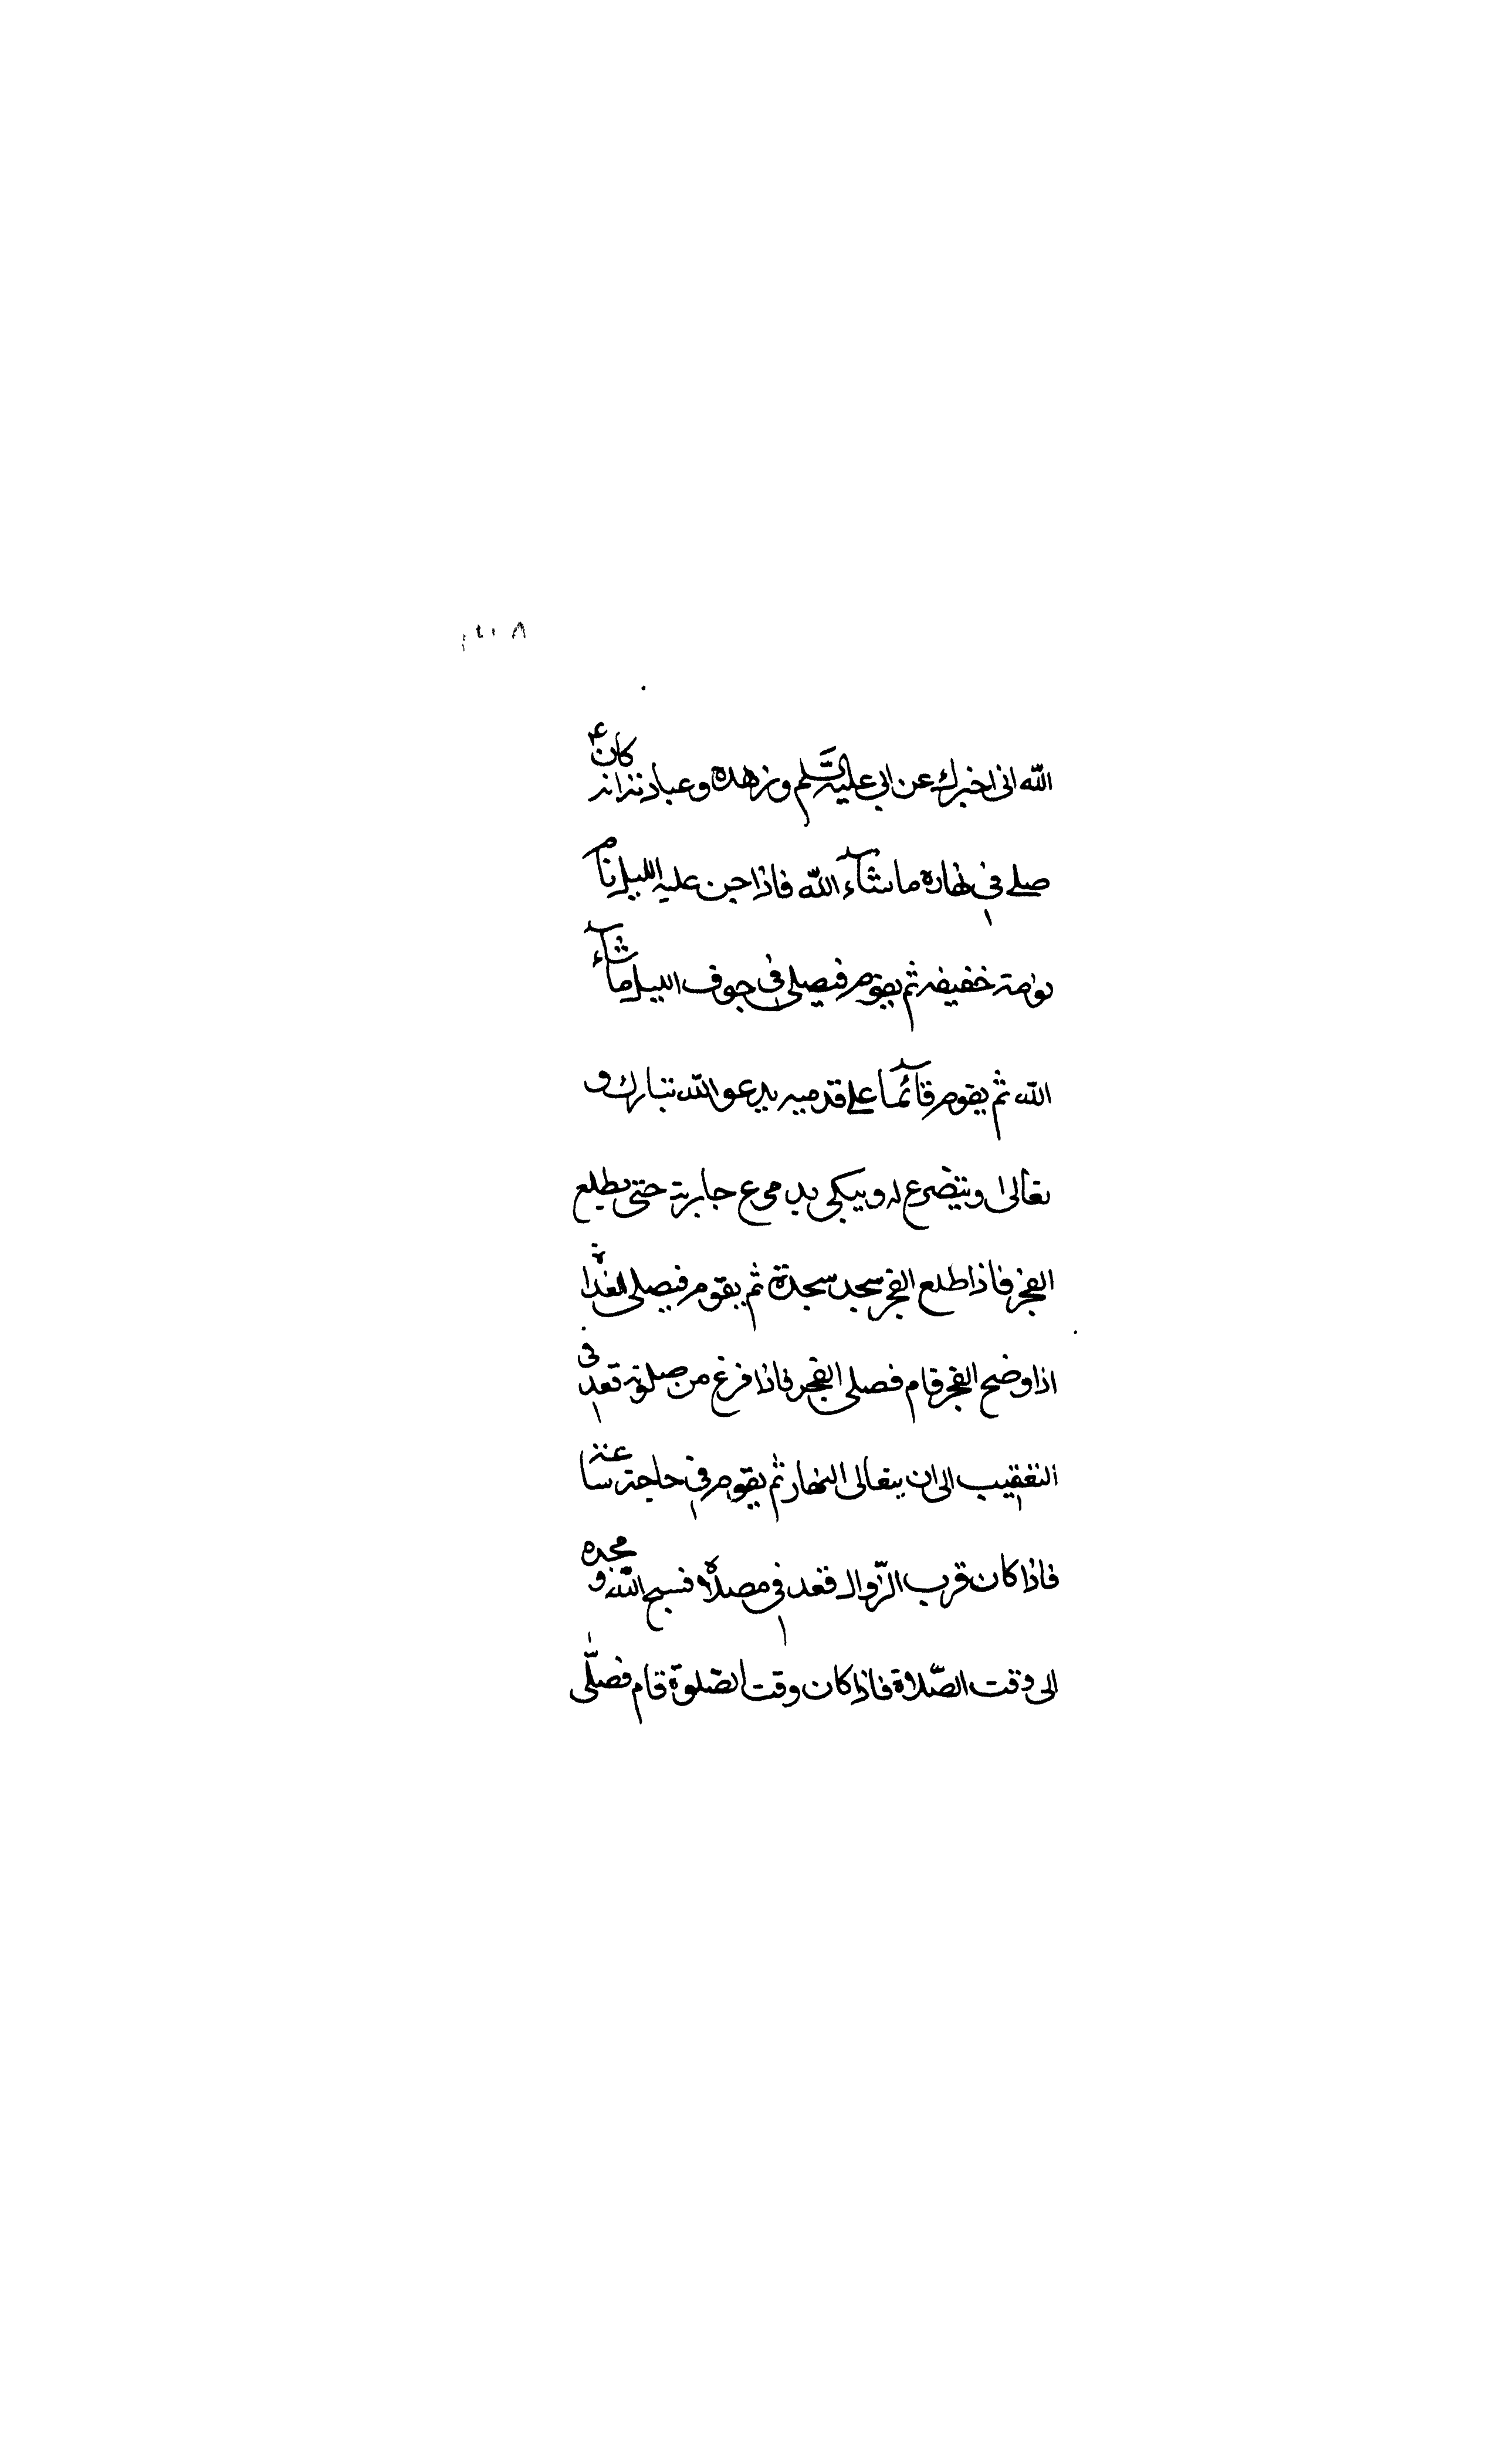 الله انى اخبرك عن ابى عليه السّلم وزهده وعبادته انه كان ع
صلى فى نهاره ما شآء الله فاذا جن عليه الليل نام
نومة خفيفه ثم يقوم فيصلى فى جوف الليل ما شآء
الله ثم يقوم قآئما على قدميه يدعو الله تبارك و
تعالى ويتضرع له ويبكى بدموع جارية حتى يطلع
الفجر فاذا طلع الفجر سجد سجدة ثم يقوم فيصلى الغداة
اذا وضح الفجر قام فصلى الفجر فاذا فرغ من صلوته قعد فى
التعقيب الى ان يتعالى النهار ثم يقوم فى حاجته ساعته
فاذا كان قرب الزّوال قعد فى مصلاه فسبح اللّه ومجده
الى وقت الصّلاة فاذا كان وقت الصّلوة قام فصلّى